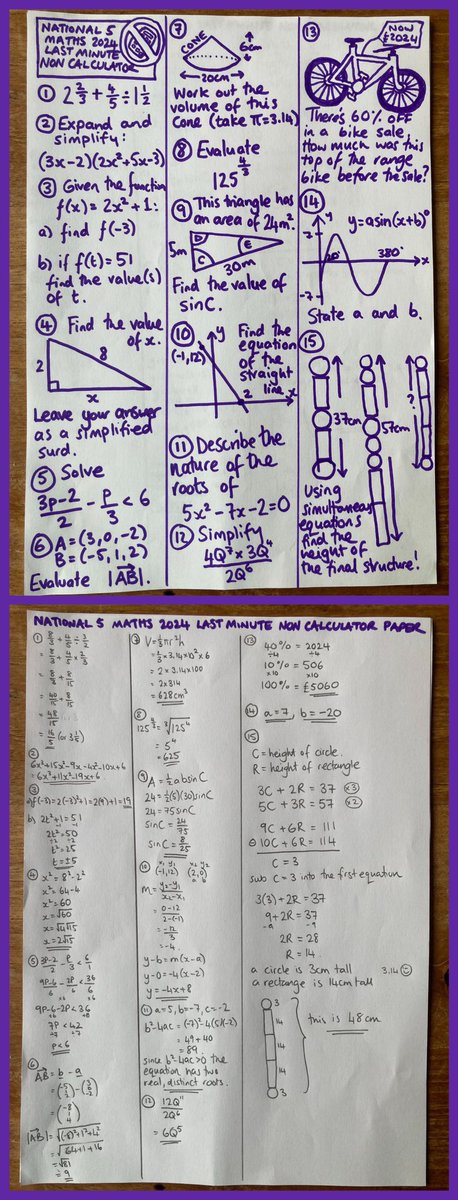 NATIONAL 5
MATHS 2024
LAST MINUTE
NON CALCULATOR
① 2 2/3 + 4/5 ÷ 1 1/2
② Expand and
simplify:
(3x-2)(2x²+5x-3)
③ Given the function
f(x) = 2x²+1:
a) find f(-3)
b) if f(t)=51
find the value(s)
of t.
④ Find the value
of x.
2
8
x
Leave your answer
as a simplified
surd.
⑤ Solve
3p-2/2 - p/3 < 6
⑥ A=(3,0,-2)
B=(-5,1,2)
Evaluate |AB|.
⑦
CONE
6cm
20cm
Work out the
volume of this
cone (take π=3.14)
⑧ Evaluate
125^4/3
⑨ This triangle has
an area of 24m².
5m
D
E
C
30m
Find the value of
sinC.
⑩
y
(-1,12)
2
x
Find the
equation
of the
straight
line
⑪ Describe the
nature of the
roots of
5x²-7x-2=0
⑫ Simplify
4Q⁷ × 3Q⁴
2Q⁶
⑬
NOW
£2024
There's 60% off
in a bike sale.
How much was this
top of the range
bike before the sale?
⑭
y
y=asin(x+b)°
7
20°
380°
x
-7
State a and b.
⑮
37cm
57cm
?
Using
simultaneous
equations
find the
height of
the final structure!
NATIONAL 5 MATHS 2024 LAST MINUTE NON CALCULATOR PAPER
① 8/3 + 4/5 ÷ 3/2
= 8/3 + 4/5 × 2/3
= 8/3 + 8/15
= 40/15 + 8/15
= 48/15
= 16/5 (or 3 1/5)
②
6x³+15x²-9x-4x²-10x+6
= 6x³+11x²-19x+6
③
a) f(-3)=2(-3)²+1=2(9)+1=19
b) 2t²+1=51
-1 -1
2t²=50
÷2 ÷2
t²=25
t=±5
④ x²=8²-2²
x²=64-4
x²=60
x=√60
x=√4√15
x=2√15
⑤ 3p-2/2 - p/3 < 6/1
9p-6/6 - 2p/6 < 36/6
×6 ×6 ×6
9p-6-2p<36
+6 +6
7p<42
÷7 ÷7
p<6
⑥
AB = b - a
= (-5 1 2) - (3 0 -2)
= (-8 1 4)
|AB| = √(-8)²+1²+4²
= √64+1+16
= √81
= 9
⑦ V=1/3πr²h
= 1/3×3.14×10²×6
= 2×3.14×100
= 2×314
= 628cm³
⑧
125^4/3 = ³√125⁴
= 5⁴
= 625
⑨ A=1/2absinC
24=1/2(5)(30)sinC
24=75sinC
sinC=24/75
sinC=8/25
⑩ x₁ y₁ x₂ y₂
(-1,12) (2,0)
a b
m= y₂-y₁/x₂-x₁
= 0-12/2-(-1)
= -12/3
= -4.
y-b=m(x-a)
y-0=-4(x-2)
y=-4x+8
⑪ a=5, b=-7, c=-2
b²-4ac=(-7)²-4(5)(-2)
= 49+40
= 89.
since b²-4ac>0 the
equation has two
real, distinct roots.
⑫ 12Q¹¹
2Q⁶
= 6Q⁵
⑬ 40%=2024
÷4 ÷4
10%=506
×10 ×10
100%=£5060
⑭ a=7, b=-20
⑮
C=height of circle.
R=height of rectangle
3C+2R=37 ×3
5C+3R=57 ×2
9C+6R=111
⊖ 10C+6R=114
C=3
sub C=3 into the first equation
3(3)+2R=37
9+2R=37
-9 -9
2R=28
R=14.
a circle is 3cm tall
a rectangle is 14cm tall
3.14
3
14
14
14
3
this is 48cm